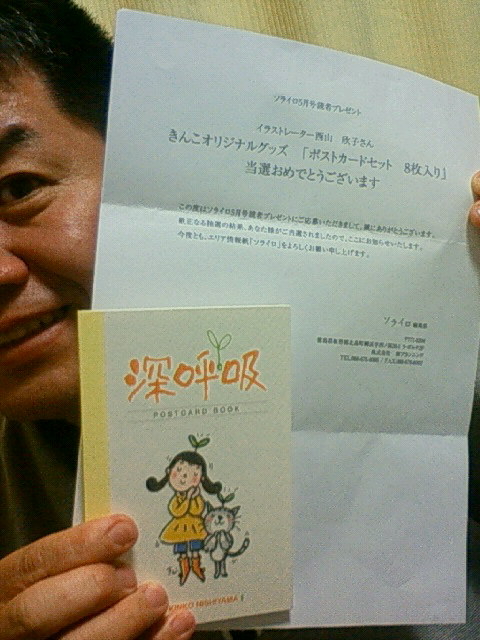 ソライロ5月号読者プレゼント
イラストレーター西山 欣子さん
きんこオリジナルグッズ 「ポストカードセット 8枚入り」
当選おめでとうございます
この度はソライロ5月号読者プレゼントにご応募いただきまして、誠にありがとうございます。
厳正なる抽選の結果、あなた様がご当選されましたので、ここにお知らせいたします。
今後とも、エリア情報紙『ソライロ』をよろしくお願い申し上げます。
ソライロ 編集部
深呼吸
POSTCARD BOOK
KINKO NISHIYAMA